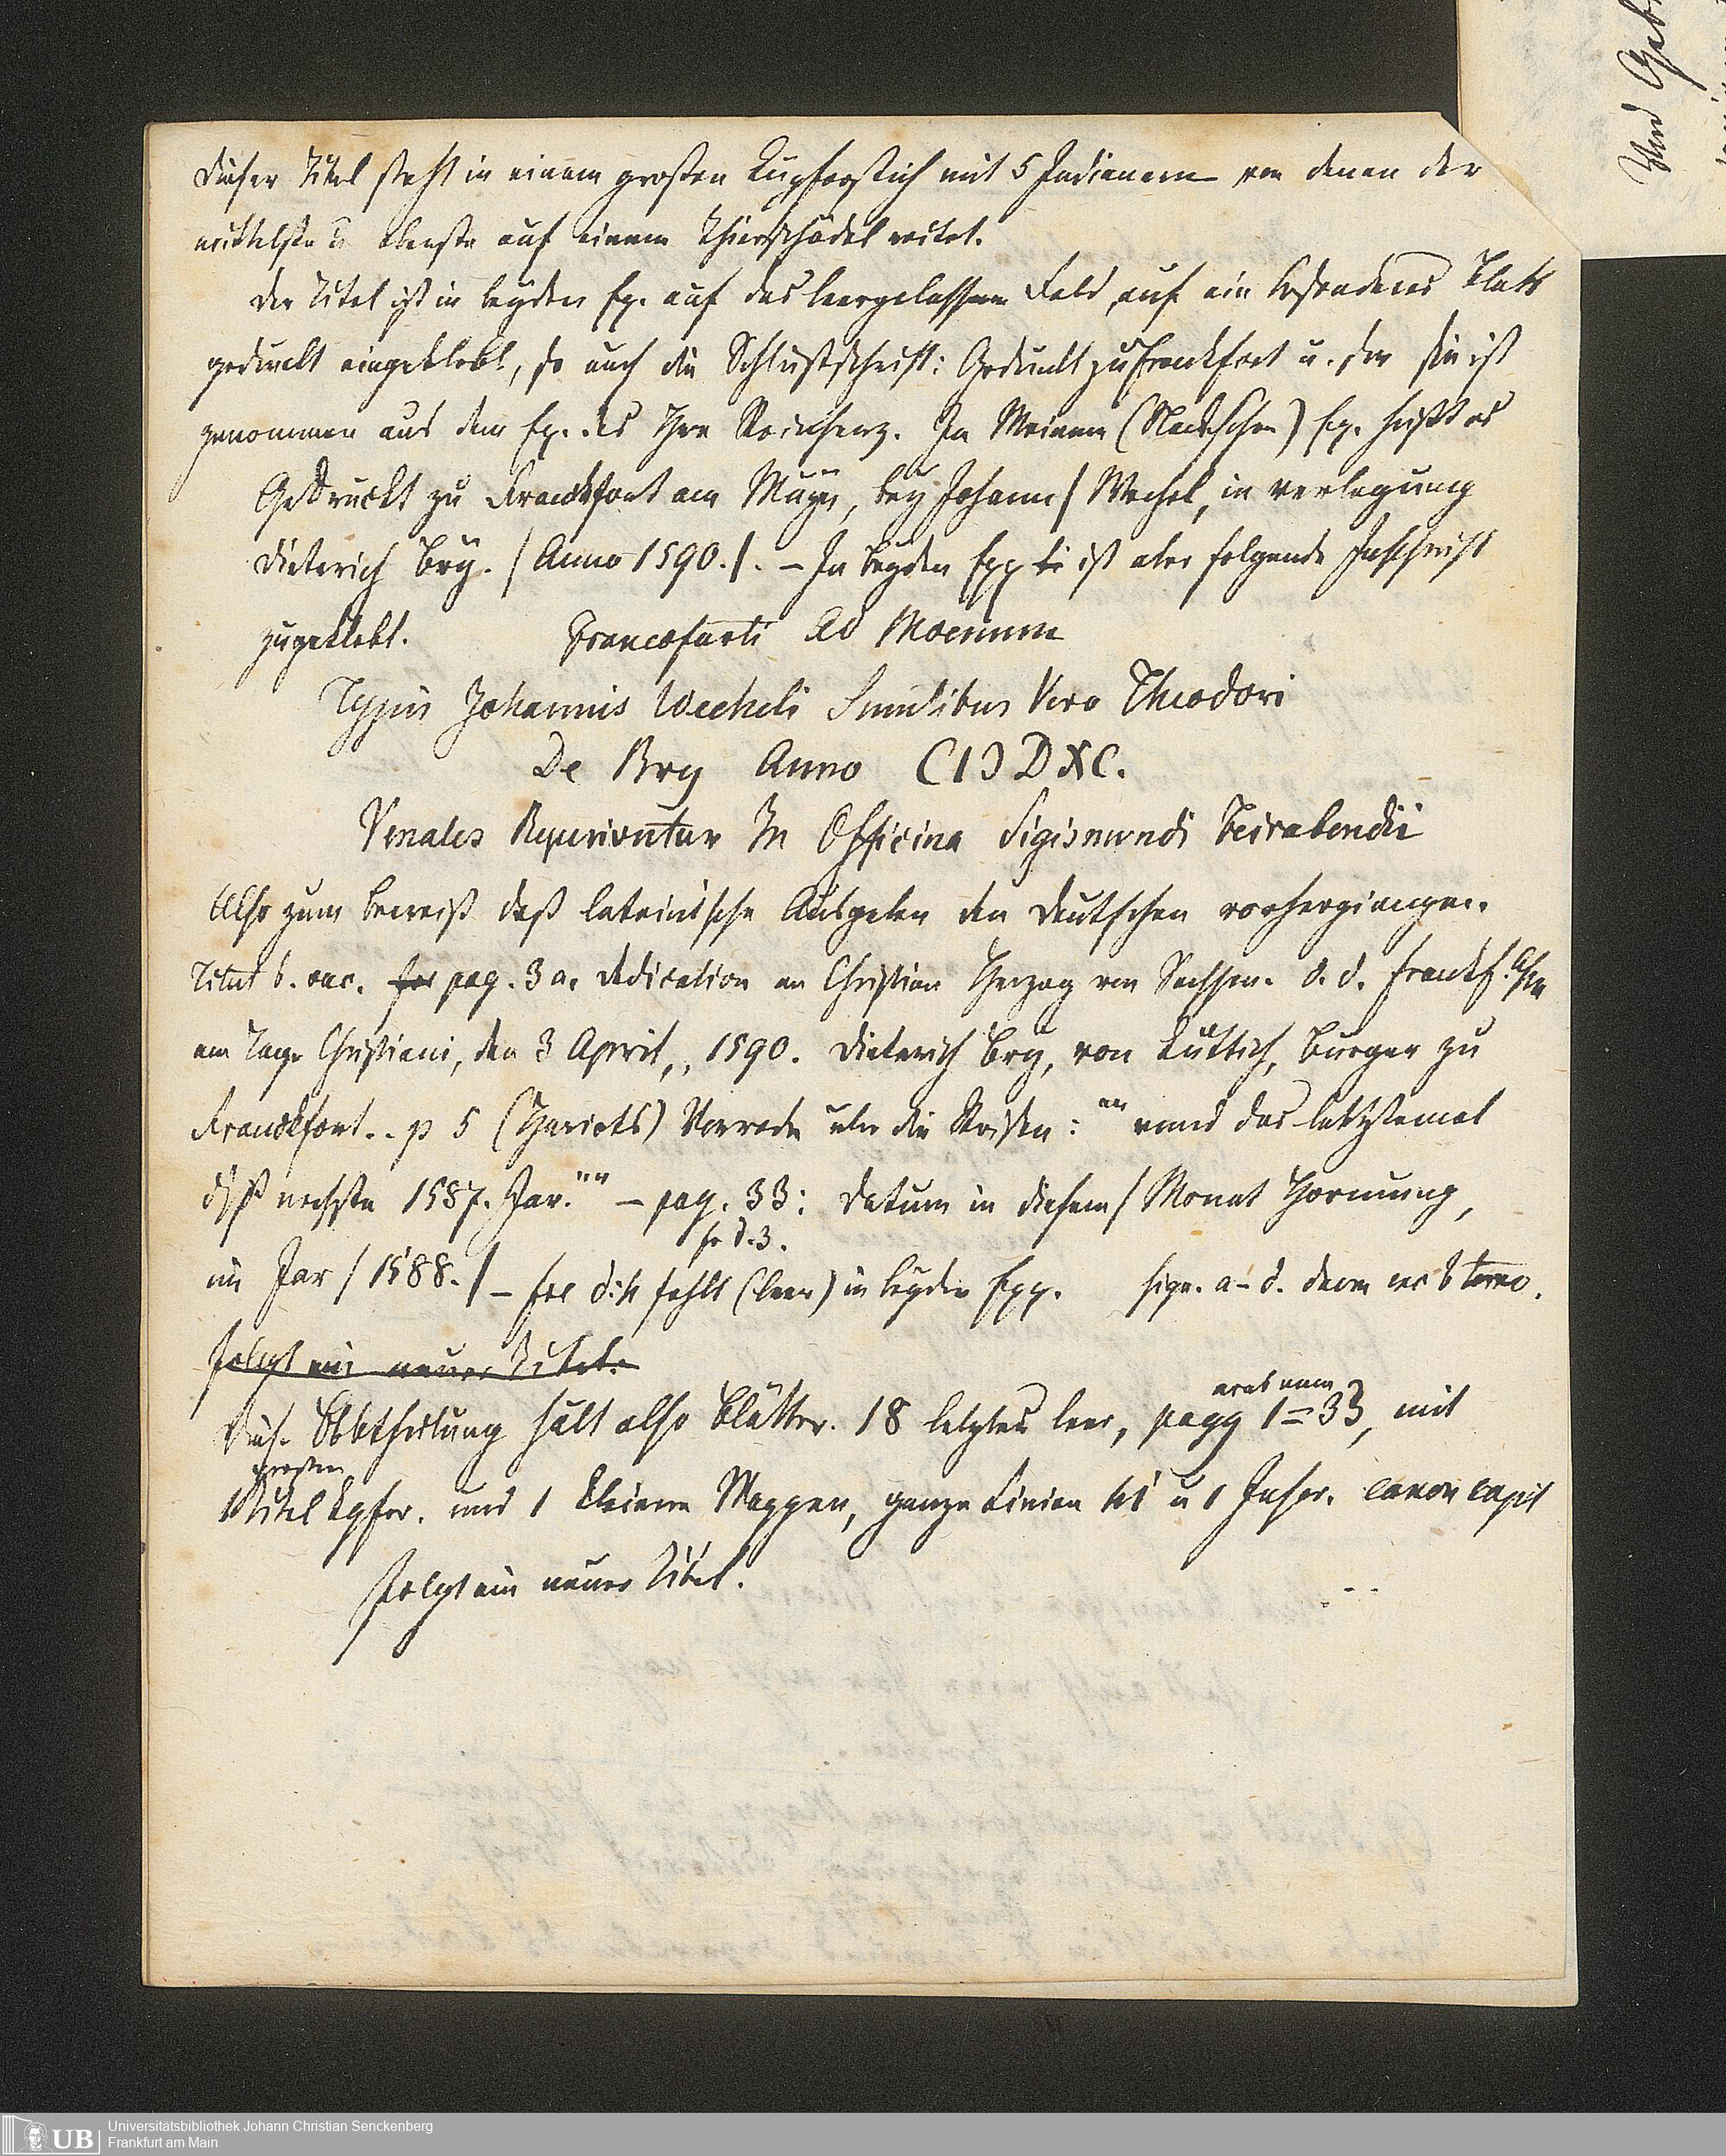 Dieser Titel steht in einem großen Kupferstich mit 5 Indianern von denen der
mittelste u. oberste auf einem Thierschädel reitet.
Der Titel ist in beyden Ex. auf das leergelassene Feld auf ein besonderes Blatt
gedruckt eingeklebt, so auch die Schlußschrift: Gedruckt zu Franckfort u. sie ist
genommen aus dem Ex. des In Meinem Ex. heißt es
Gedruckt zu Franckfort am Mayn, bey Johann / Wechel, in verlegung
Dieterich Bry. / Anno 1590. /. – In beyden Exx ist aber folgende Inschrift
zugeklebt. Francofurti Ad Moenum
Typis Johannis Wecheli Sumtibus Vero Theodori
De Bry Anno CIƆ D XC.
Venales Reperiuntur In Officina Sigismundi Feirabendii
Also zum Beweiß daß lateinische Ausgaben den Deutschen vorhergiengen.
Titul b. vac. pag. 3 a. Dedication an Christian Herzog von Sachsen. d. d. Frankf.
am Tage Christiani, den 3 April, 1590. Dieterich Bry, von Lüttich, Burger zu
Franckfort. p 5 (Hariots) Vorrede über die Reisen: "" vnnd das letztemal
diß nechste 1587. Jar."" – pag. 33: Datum in diesem / Monat Hornung,
fo d. 3.
im Jar / 1588. / – fol d. 4 fehlt (leer) in beyden Exx. sign. a – d. davon b terno.
folgt ein neuer Titel.
arab num
Diese Abtheilung hält also Blätter. 18 letztes leer, pagg 1 = 33, mit
großen
1 Titel Kpfer. und 1 kleinen Wappen, ganze Linien
folgt ein neuer Titel.
Und
Universitätsbibliothek Johann Christian Senckenberg
Frankfurt am Main
UB